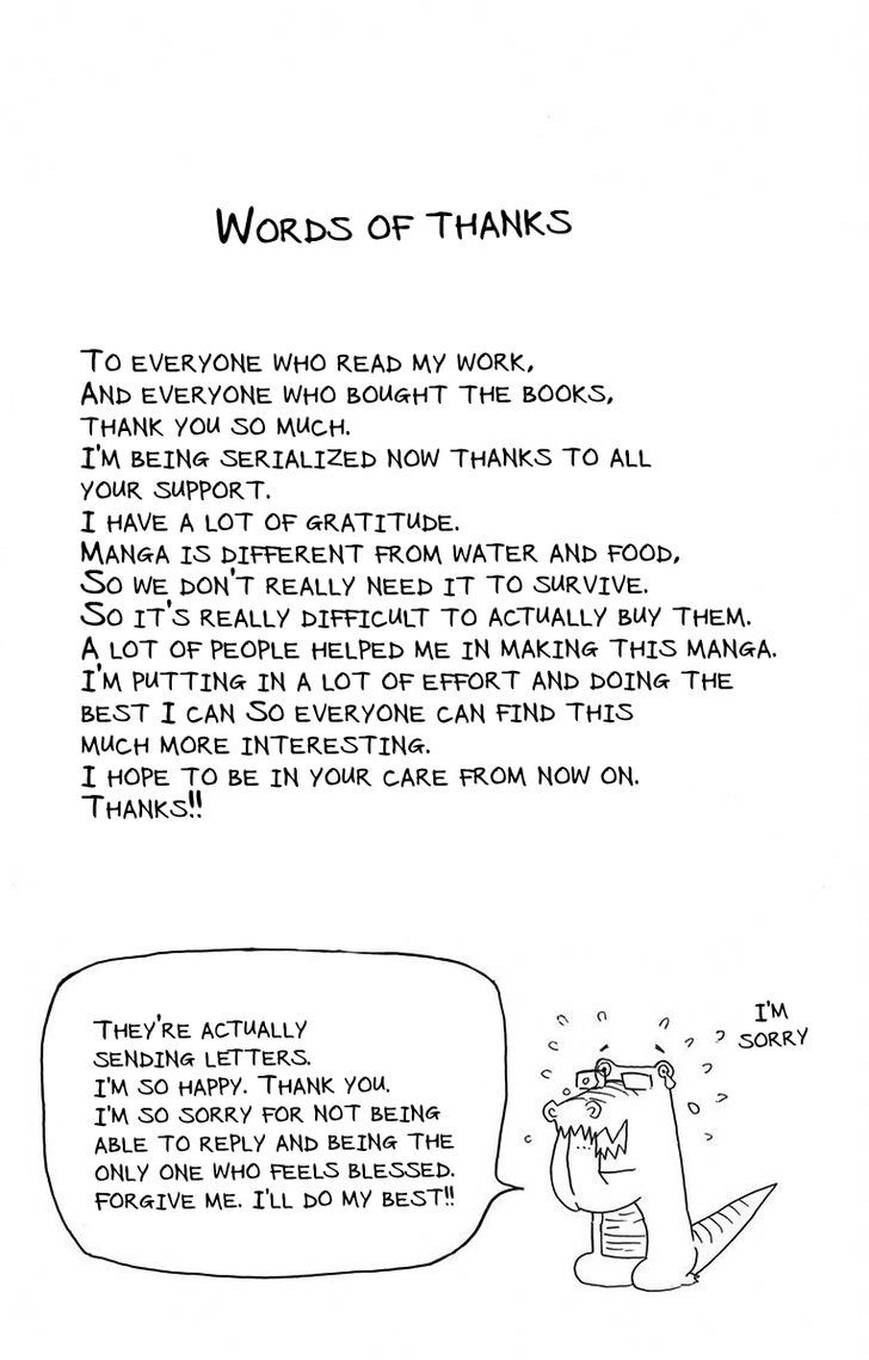 WORDS OF THANKS
TO EVERYONE WHO READ MY WORK,
AND EVERYONE WHO BOUGHT THE BOOKS,
THANK YOU SO MUCH.
I'M BEING SERIALIZED NOW THANKS TO ALL
YOUR SUPPORT.
I HAVE A LOT OF GRATITUDE.
MANGA IS DIFFERENT FROM WATER AND FOOD,
SO WE DON'T REALLY NEED IT TO SURVIVE.
SO IT'S REALLY DIFFICULT TO ACTUALLY BUY THEM.
A LOT OF PEOPLE HELPED ME IN MAKING THIS MANGA.
I'M PUTTING IN A LOT OF EFFORT AND DOING THE
BEST I CAN SO EVERYONE CAN FIND THIS
MUCH MORE INTERESTING.
I HOPE TO BE IN YOUR CARE FROM NOW ON.
THANKS!!
THEY'RE ACTUALLY
SENDING LETTERS.
I'M SO HAPPY. THANK YOU.
I'M SO SORRY FOR NOT BEING
ABLE TO REPLY AND BEING THE
ONLY ONE WHO FEELS BLESSED.
FORGIVE ME. I'LL DO MY BEST!!
I'M
SORRY